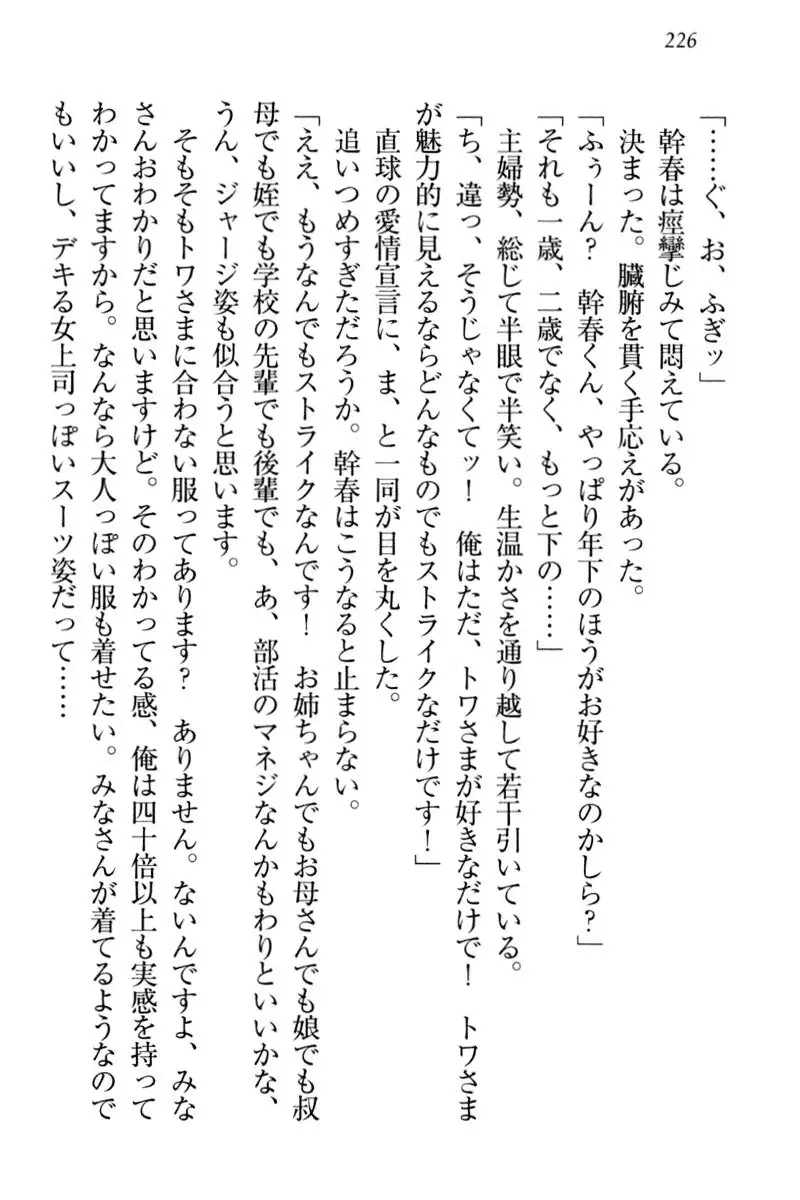 226
「……ぐ、お、ふぎッ」
幹春は痙攣じみて悶えている。
決まった。臓腑を貫く手応えがあった。
「ふぅーん?　幹春くん、やっぱり年下のほうがお好きなのかしら?」
「それも一歳、二歳でなく、もっと下の……」
主婦勢、総じて半眼で半笑い。生温かさを通り越して若干引いている。
「ち、違っ、そうじゃなくてッ!　俺はただ、トワさまが好きなだけで!　トワさま
が魅力的に見えるならどんなものでもストライクなだけです!」
直球の愛情宣言に、ま、と一同が目を丸くした。
追いつめすぎただろうか。幹春はこうなると止まらない。
「ええ、もうなんでもストライクなんです!　お姉ちゃんでもお母さんでも娘でも叔
母でも姪でも学校の先輩でも後輩でも、あ、部活のマネジなんかもわりといいかな、
うん、ジャージ姿も似合うと思います。
そもそもトワさまに合わない服ってあります?　ありません。ないんですよ、みな
さんおわかりだと思いますけど。そのわかってる感、俺は四十倍以上も実感を持って
わかってますから。なんなら大人っぽい服も着せたい。みなさんが着てるようなので
もいいし、デキる女上司っぽいスーツ姿だって……